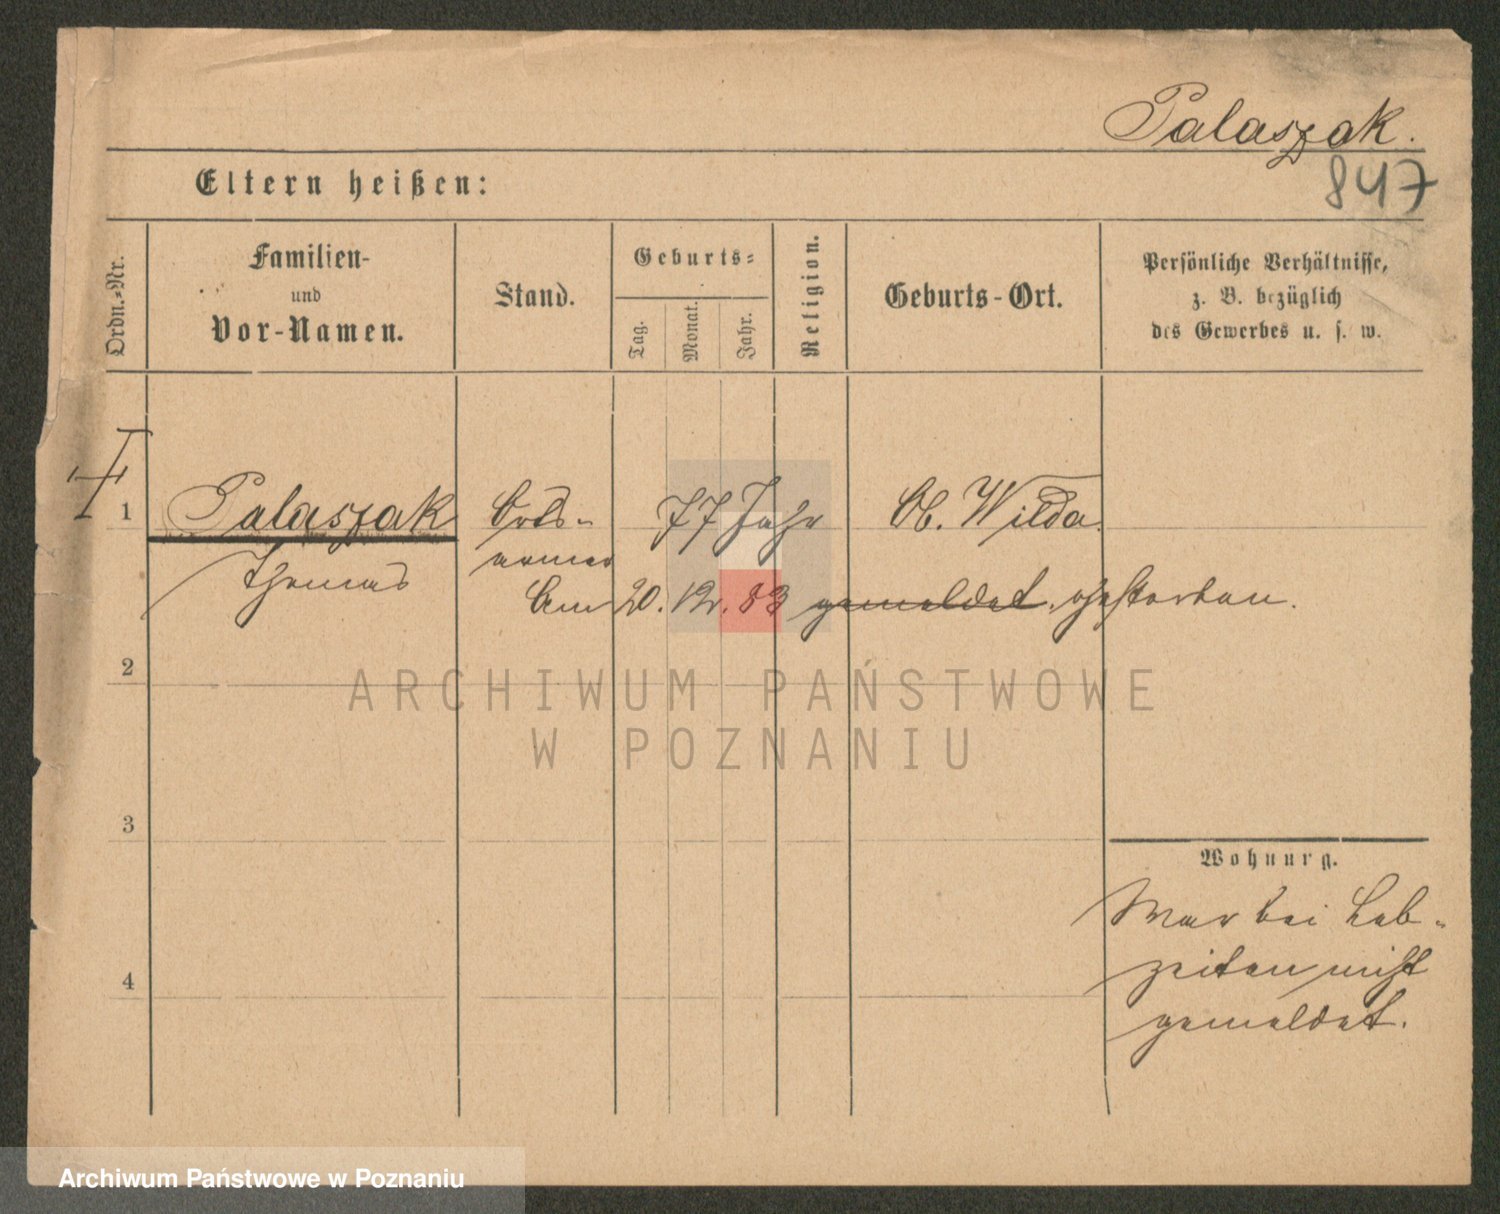 Palaszak.
847
Eltern heißen:
Ordn.-Nr.
Familien-
und
Vor-Namen.
Stand.
Geburts-
Tag.
Monat.
Jahr.
Religion.
Geburts-Ort.
Persönliche Verhältnisse,
z. B. bezüglich
des Gewerbes u. s. w.
1 Palaszak Orts- 77 Jahr Ob. Wilda.
Thomas armer
Am 20. 12. 83 gemeldet. gestorben.
2
3
4
Wohnung.
War bei Leb-
zeiten nicht
gemeldet.
ARCHIWUM PAŃSTWOWE
W POZNANIU
Archiwum Państwowe w Poznaniu